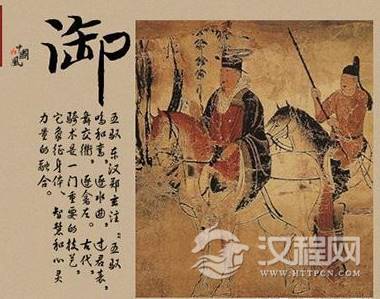 御
中國風
五驭 东汉郑玄注:“五驭
鸣和鸾,逐水曲,过君表,
舞交衢,逐禽左。古代,
骑术是一门重要的技艺,
它象征身体、智慧和心灵
力量的融合。
汉程网
HTTPCN.COM